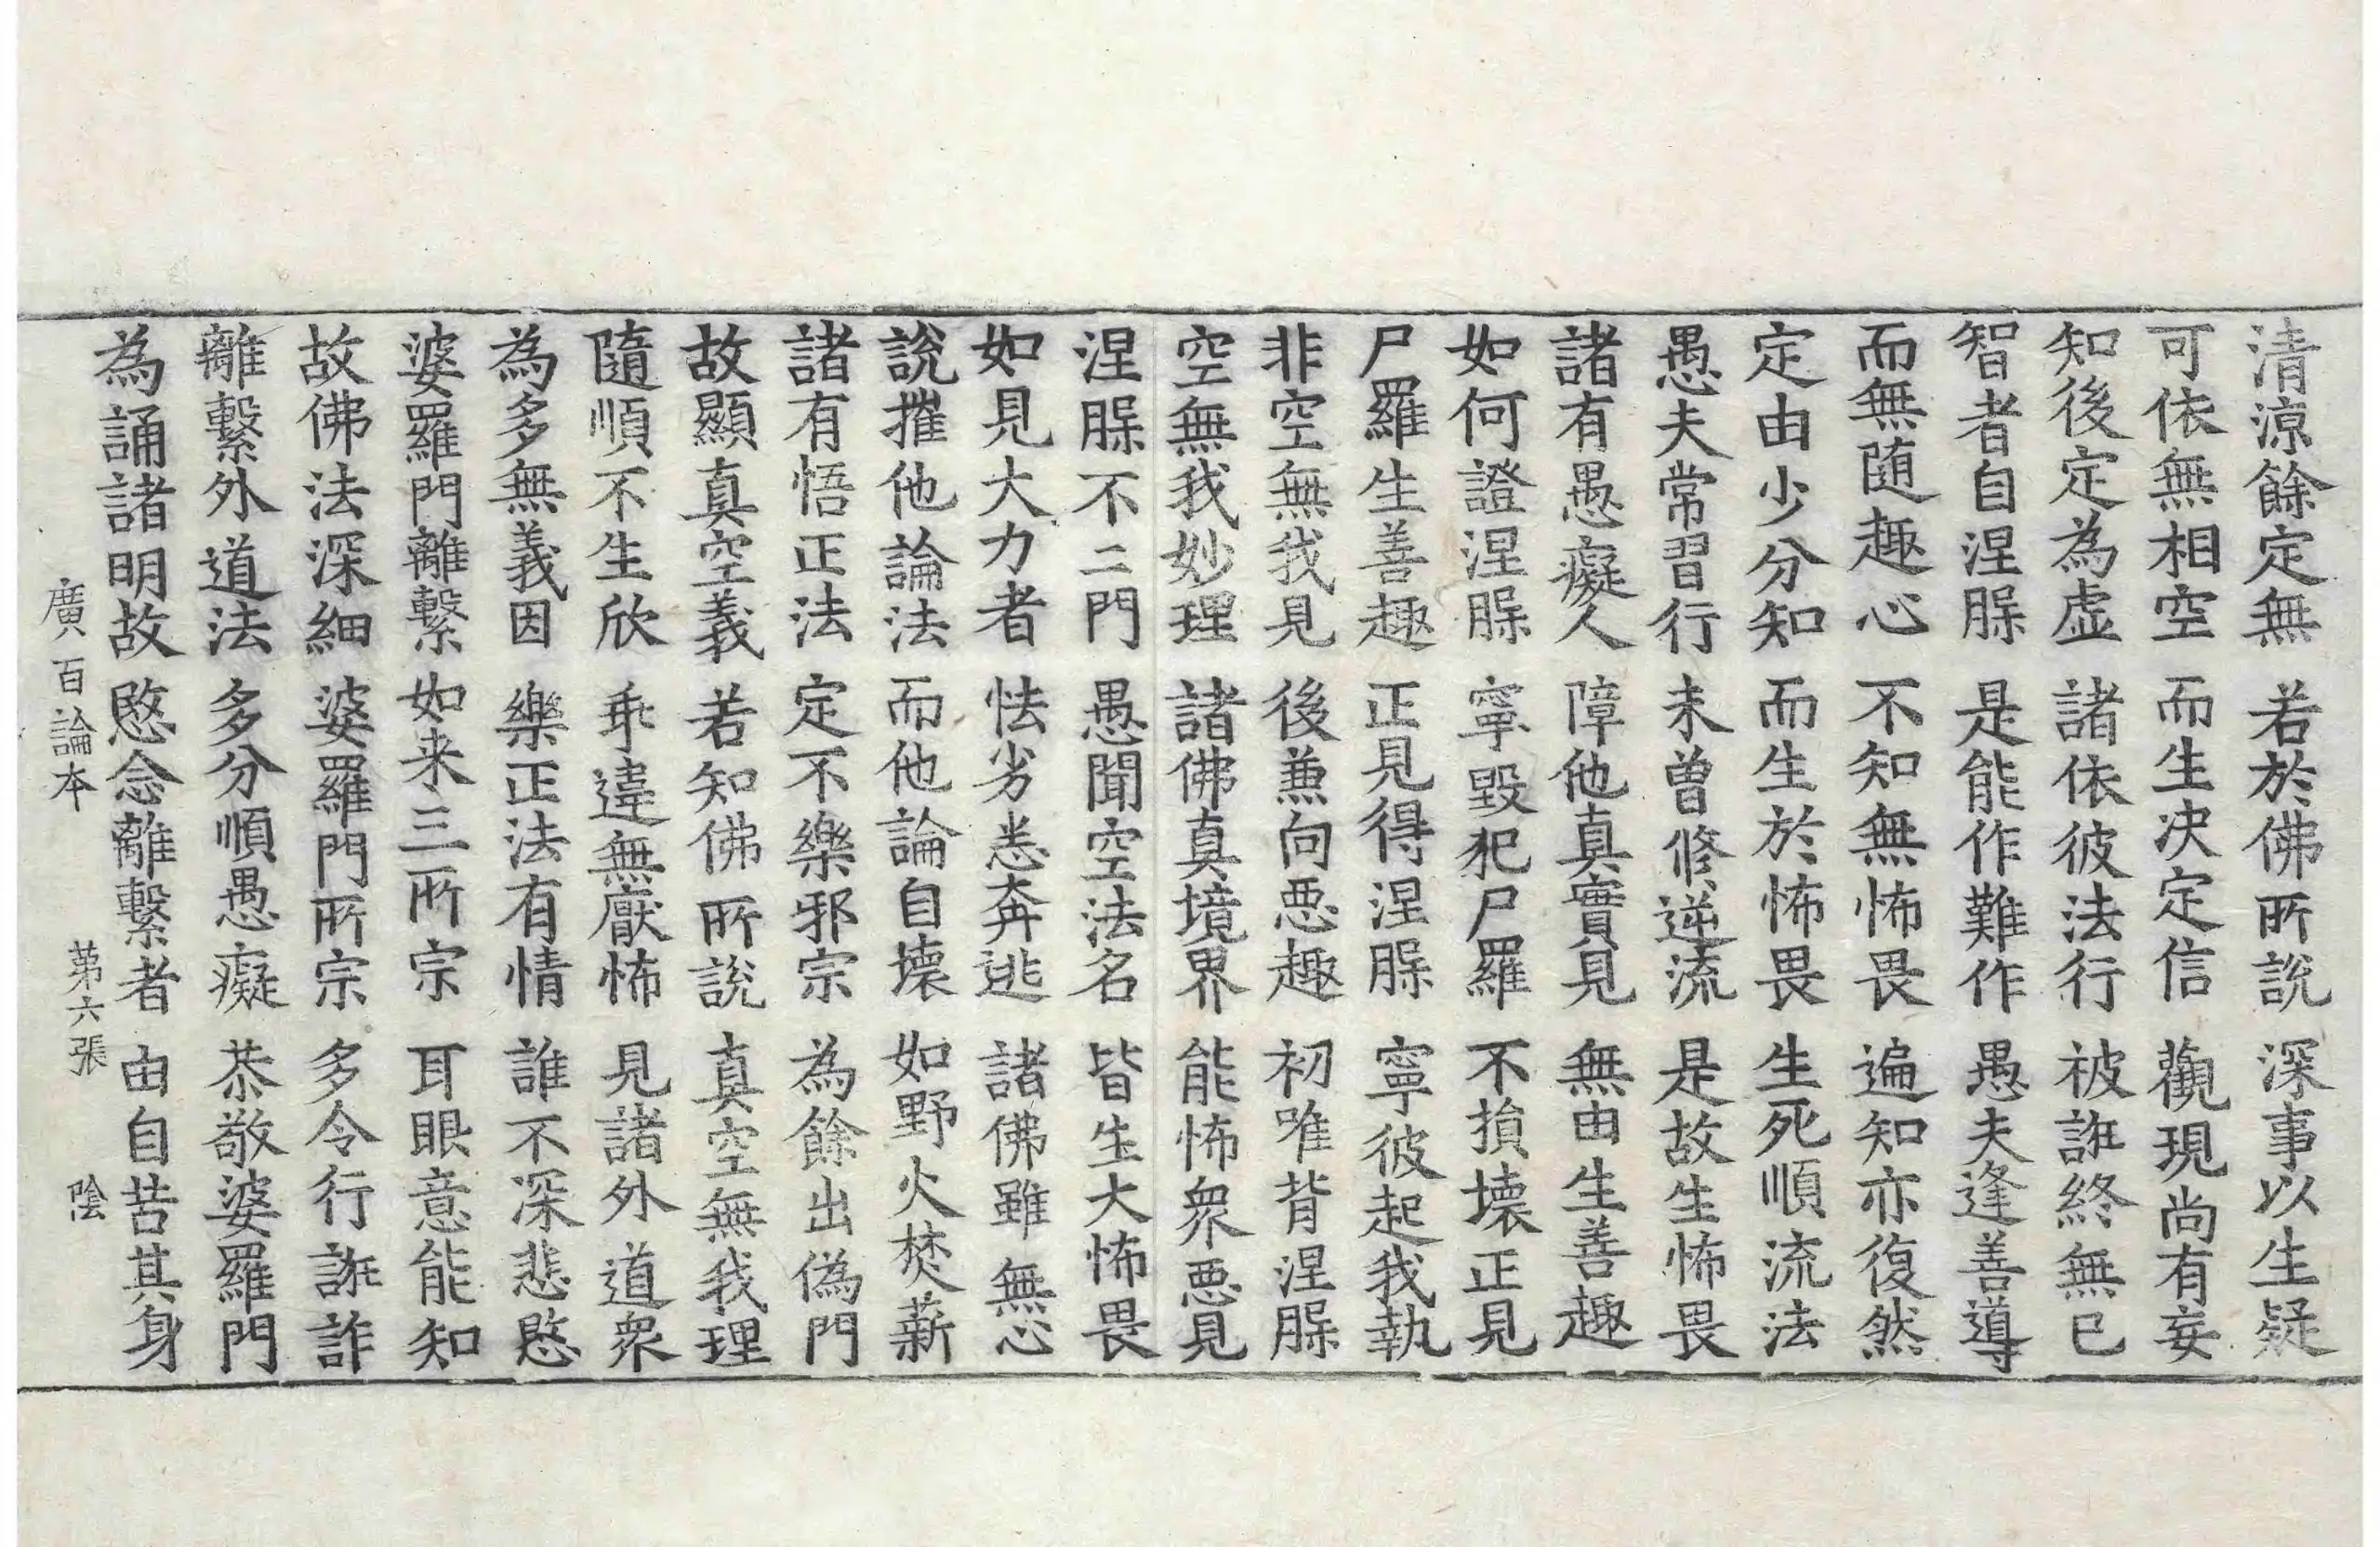 清涼餘定無　若於佛所說　深事以生疑
可依無相空　而生決定信　觀現尚有妄
知後定為虛　諸依彼法行　被誑終無已
智者自涅脲　是能作難作　愚夫逢善導
而無随趣心　不知無怖畏　遍知亦復然
定由少分知　而生於怖畏　生死順流法
愚夫常習行　未曾修逆流　是故生怖畏
諸有愚癡人　障他真實見　無由生善趣
如何證涅脲　寧毀犯尸羅　不損壞正見
尸羅生善趣　正見得涅脲　寧彼起我執
非空無我見　後兼向惡趣　初唯背涅脲
空無我妙理　諸佛真境界　能怖衆惡見
涅脲不二門　愚聞空法名　皆生大怖畏
如見大力者　怯劣悉奔逃　諸佛雖無心
說摧他論法　而他論自壞　如野火焚薪
諸有悟正法　定不樂邪宗　為餘出偽門
故顯真空義　若知佛所說　真空無我理
隨順不生欣　乖違無厭怖　見諸外道衆
為多無義因　樂正法有情　誰不深悲愍
婆羅門離繫　如来三所宗　耳眼意能知
故佛法深細　婆羅門所宗　多令行誑詐
離繫外道法　多分順愚癡　恭敬婆羅門
為誦諸明故　愍念離繫者　由自苦其身
廣百論本　第六張　陰